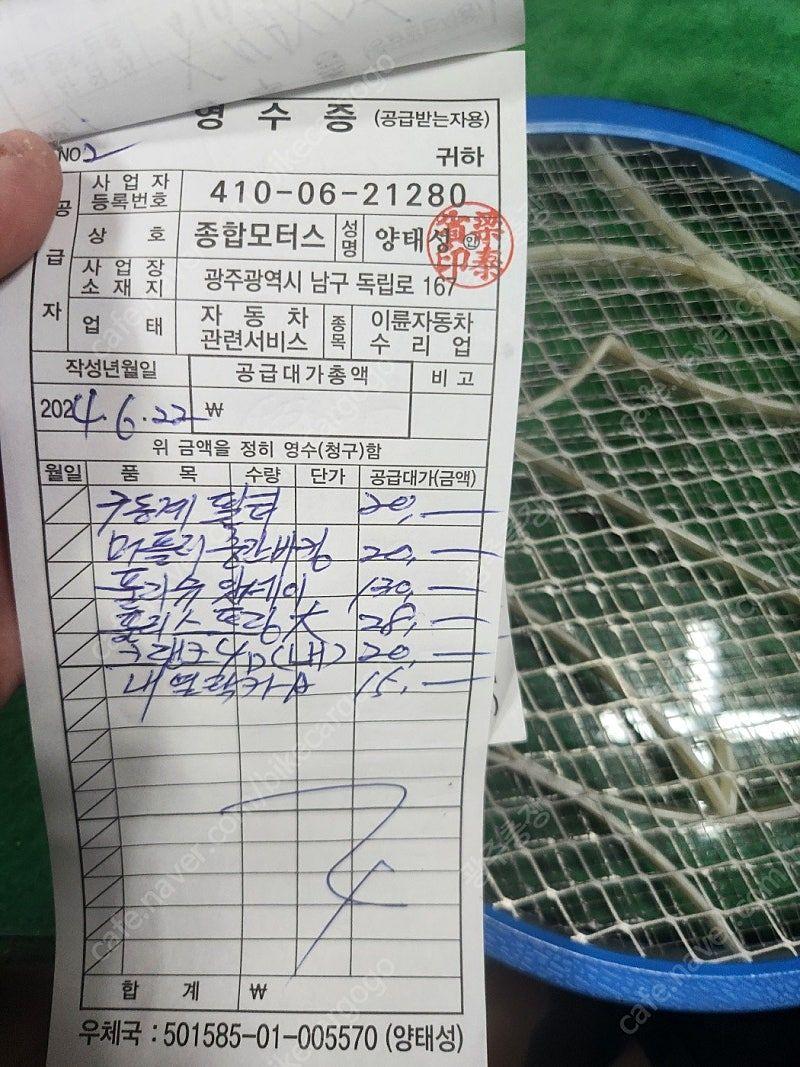 영 수 증 (공급받는자용)
NO 2 귀하
공급자
사업자등록번호 410-06-21280
상 호 종합모터스 성명 양태성 인
사업장소재지 광주광역시 남구 독립로 167
업 태 자동차관련서비스 종목 이륜자동차수리업
작성년월일 공급대가총액 비 고
2024.6.22 ₩
위 금액을 정히 영수(청구)함
월일 품 목 수량 단가 공급대가(금액)
구동계 필터 20,—
머플러 중간바킹 20,—
풀리 앗세이 130,—
스프링 大 28,—
크랭크 (내) 20,—
내열락카 15,—
합 계 ₩
우체국 : 501585-01-005570 (양태성)
cafe.naver.com/bikecargogo